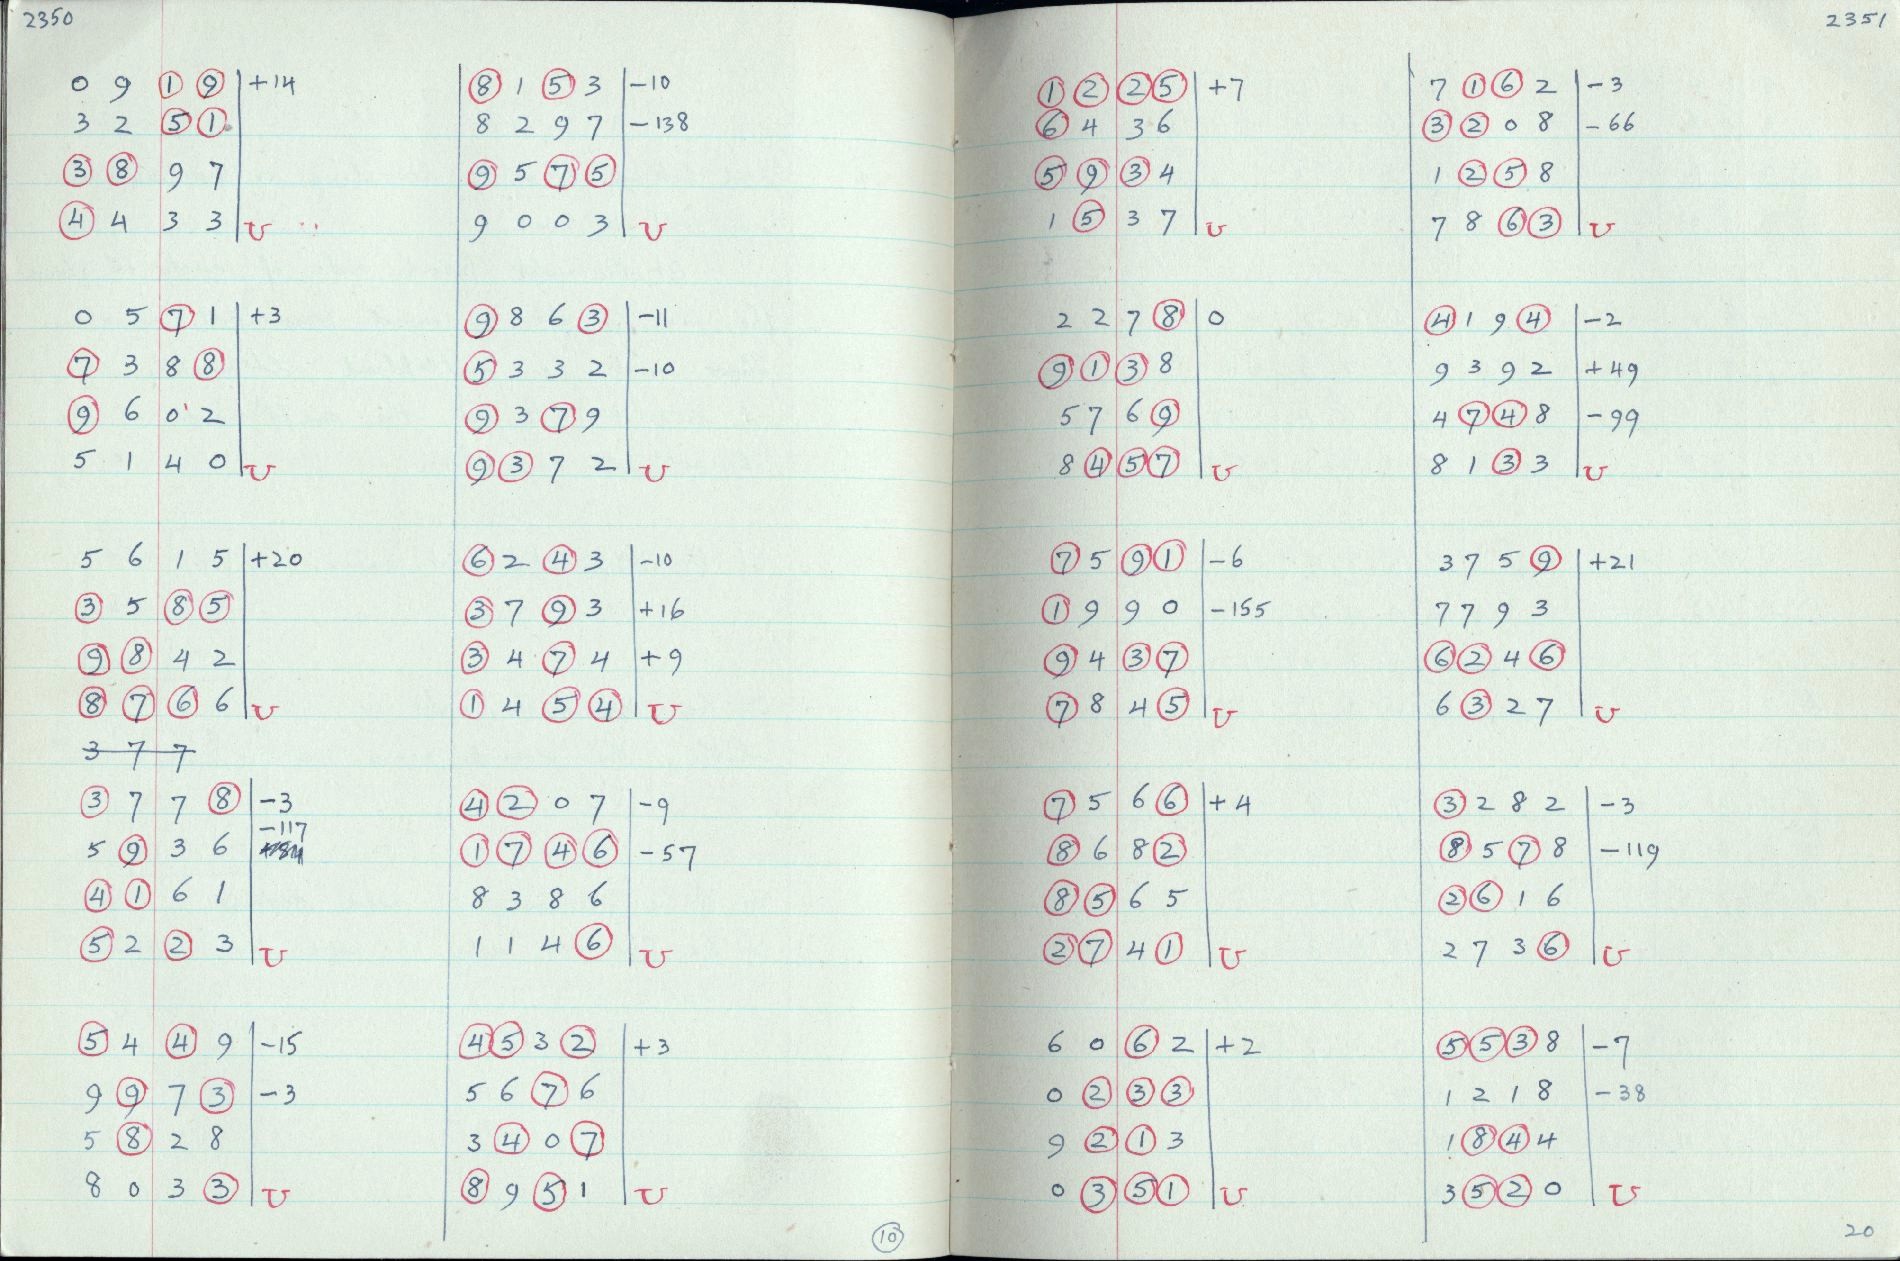 2350
0 9 1 9 +14
3 2 5 1
3 8 9 7
4 4 3 3 U
0 5 7 1 +3
7 3 8 8
9 6 0 2
5 1 4 0 U
5 6 1 5 +20
3 5 8 5
9 8 4 2
8 7 6 6 U
3 7 7
3 7 7 8 -3
-117
5 9 3 6
4 1 6 1
5 2 2 3 U
5 4 4 9 -15
9 9 7 3 -3
5 8 2 8
8 0 3 3 U
8 1 5 3 -10
8 2 9 7 -138
9 5 7 5
9 0 0 3 U
9 8 6 3 -11
5 3 3 2 -10
9 3 7 9
9 3 7 2 U
6 2 4 3 -10
3 7 9 3 +16
3 4 7 4 +9
1 4 5 4 U
4 2 0 7 -9
1 7 4 6 -57
8 3 8 6
1 1 4 6 U
4 5 3 2 +3
5 6 7 6
3 4 0 7
8 9 5 1 U
10
2351
1 2 2 5 +7
6 4 3 6
5 9 3 4
1 5 3 7 U
2 2 7 8 0
9 1 3 8
5 7 6 9
8 4 5 7 U
7 5 9 1 -6
1 9 9 0 -155
9 4 3 7
7 8 4 5 U
7 5 6 6 +4
8 6 8 2
8 5 6 5
2 7 4 1 U
6 0 6 2 +2
0 2 3 3
9 2 1 3
0 3 5 1 U
7 1 6 2 -3
3 2 0 8 -66
1 2 5 8
7 8 6 3 U
4 1 9 4 -2
9 3 9 2 +49
4 7 4 8 -99
8 1 3 3 U
3 7 5 9 +21
7 7 9 3
6 2 4 6
6 3 2 7 U
3 2 8 2 -3
8 5 7 8 -119
2 6 1 6
2 7 3 6 U
5 5 3 8 -7
1 2 1 8 -38
1 8 4 4
3 5 2 0 U
20